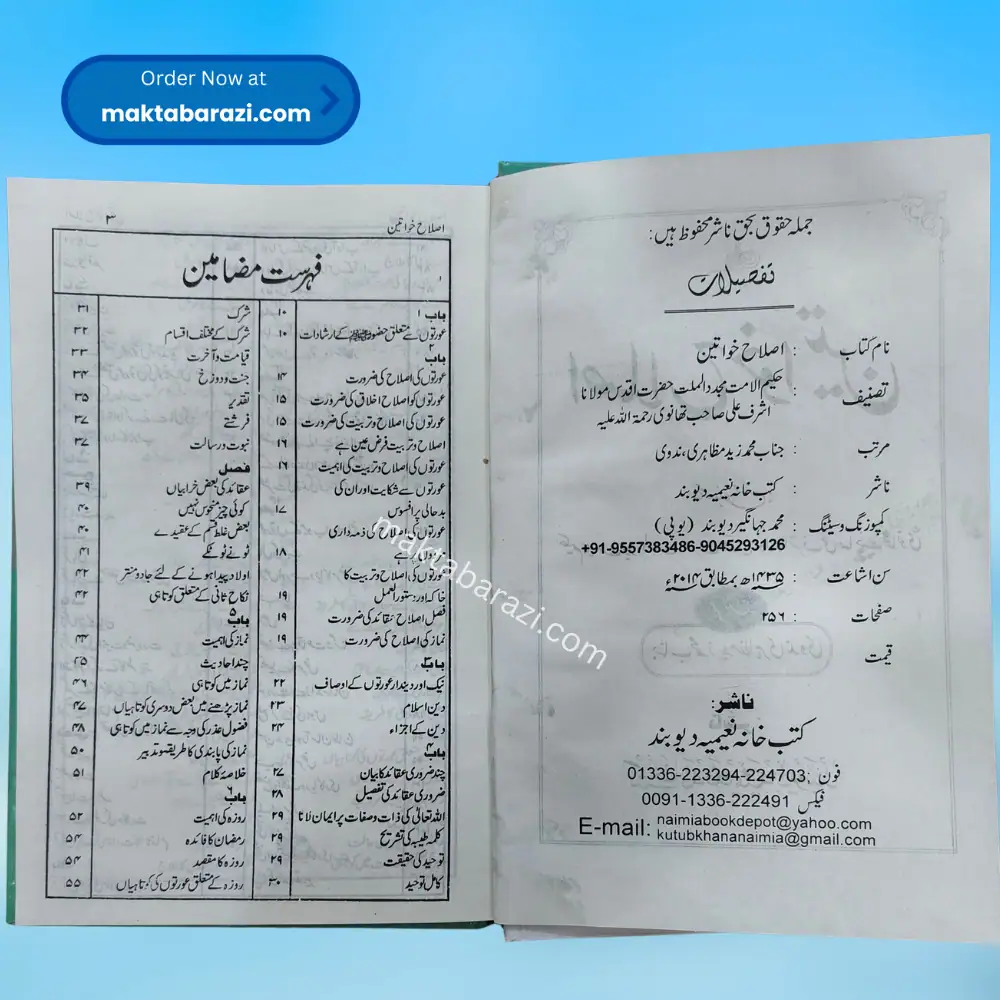 Order Now at
maktabarazi.com
جملہ حقوق بحق ناشر محفوظ ہیں:
تفصیلات
نام کتاب : اصلاح خواتین
تصنیف : حکیم الامت مجدد الملت حضرت اقدس مولانا
اشرف علی صاحب تھانوی رحمۃ اللہ علیہ
مرتب : جناب محمد زید مظاہری، ندوی
ناشر : کتب خانہ نعیمیہ دیوبند
کمپوزنگ وسیٹنگ : محمد جہانگیر دیوبند (یوپی)
+91-9557383486-9045293126
سن اشاعت : ۱۴۳۵ھ بمطابق ۲۰۱۴ء
صفحات : ۲۵۶
قیمت :
ناشر:
کتب خانہ نعیمیہ دیوبند
فون ;01336-223294-224703
فیکس 0091-1336-222491
E-mail: naimiabookdepot@yahoo.com
kutubkhananaimia@gmail.com
اصلاح خواتین ۳
فہرست مضامین
باب ۱
عورتوں سے متعلق حضور ﷺ کے ارشادات ۱۰
باب ۲
عورتوں کی اصلاح کی ضرورت ۱۴
عورتوں کو اصلاح اخلاق کی ضرورت ۱۵
عورتوں کی اصلاح وتربیت کی ضرورت ۱۵
اصلاح وتربیت فرض عین ہے ۱۶
عورتوں کی اصلاح وتربیت کی اہمیت ۱۶
عورتوں سے شکایت اور ان کی
بدحالی پر افسوس ۱۷
عورتوں کی اصلاح کی ذمہ داری
۱۸
عورتوں کی اصلاح وتربیت کا
خاکہ اور دستور العمل ۱۹
فصل اصلاح عقائد کی ضرورت ۱۹
نماز کی اصلاح کی ضرورت ۱۹
باب ۳
نیک اور دیندار عورتوں کے اوصاف ۲۲
دین اسلام ۲۳
دین کے اجزاء ۲۴
باب ۴
چند ضروری عقائد کا بیان ۲۷
ضروری عقائد کی تفصیل ۲۸
اللہ تعالیٰ کی ذات وصفات پر ایمان لانا ۲۹
کلمہ طیبہ کی تشریح ۲۹
توحید کی حقیقت ۲۹
کامل توحید ۳۰
شرک ۳۱
شرک کے مختلف اقسام ۳۲
قیامت وآخرت ۳۳
جنت ودوزخ ۳۴
تقدیر ۳۵
فرشتے ۳۷
نبوت ورسالت ۳۷
فصل
عقائد کی بعض خرابیاں ۳۹
کوئی چیز منحوس نہیں ۴۰
بعض غلط قسم کے عقیدے ۴۰
ٹونے ٹوٹکے ۴۱
اولاد پیدا ہونے کے لئے جادو منتر ۴۲
نکاح ثانی کے متعلق کوتاہی ۴۲
باب ۵
نماز کی اہمیت ۴۴
چند احادیث ۴۵
نماز میں کوتاہی ۴۶
نماز پڑھنے میں بعض دوسری کوتاہیاں ۴۷
فضول عذر کی وجہ سے نماز میں کوتاہی ۴۸
نماز کی پابندی کا طریقہ وتدبیر ۵۰
خلاصۂ کلام ۵۱
باب ۶
روزہ کی اہمیت ۵۲
رمضان کا فائدہ ۵۴
روزہ کا مقصد ۵۴
روزہ کے متعلق عورتوں کی کوتاہیاں ۵۵
maktabarazi.com